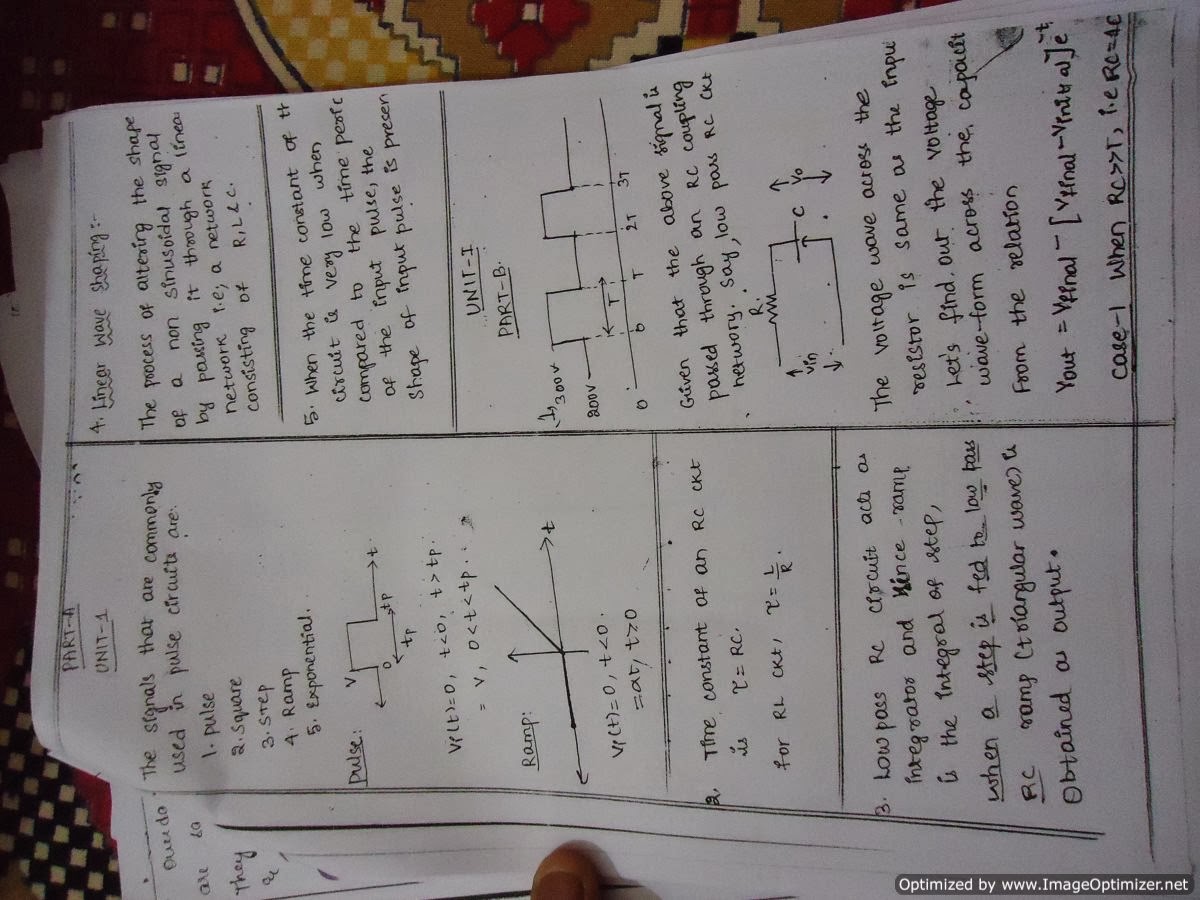 PART-A
UNIT-1
The signals that are commonly
used in pulse circuits are:
1. pulse
2. square
3. step
4. Ramp
5. Exponential.
Pulse:
V
0
tp
t
tp
Vi(t)=0, t<0, t>tp.
= V, 0<t<tp.
Ramp:
t
Vi(t)=0, t<0.
=at, t>0
2. Time constant of an RC ckt
is τ = RC.
for RL ckt, τ = L/R.
3. Low pass RC circuit acts as
integrator and since ramp
is the integral of step,
when a step is fed to low pass
RC ramp (triangular wave) is
obtained as output.
4. Linear wave shaping:-
The process of altering the shape
of a non sinusoidal signal
by passing it through a linea
network i.e; a network
consisting of R,L & C.
5. When the time constant of th
circuit is very low when
compared to the time peric
of the input pulse, the
shape of input pulse is presen
UNIT-I
PART-B.
1) 300V
200V
T
0
0
T
2T
3T
Given that the above signal is
passed through an RC coupling
network. say, low pass RC ckt
R
Vin
C
Vo
The voltage wave across the
resistor is same as the inpu
Let's find out the voltage
wave-form across the capacit
From the relation
Vout = Vfinal - [Vfinal - Vinitial]e^-t
case-1 When RC>>T, i.e RC=4
are to
They
Optimized by www.ImageOptimizer.net